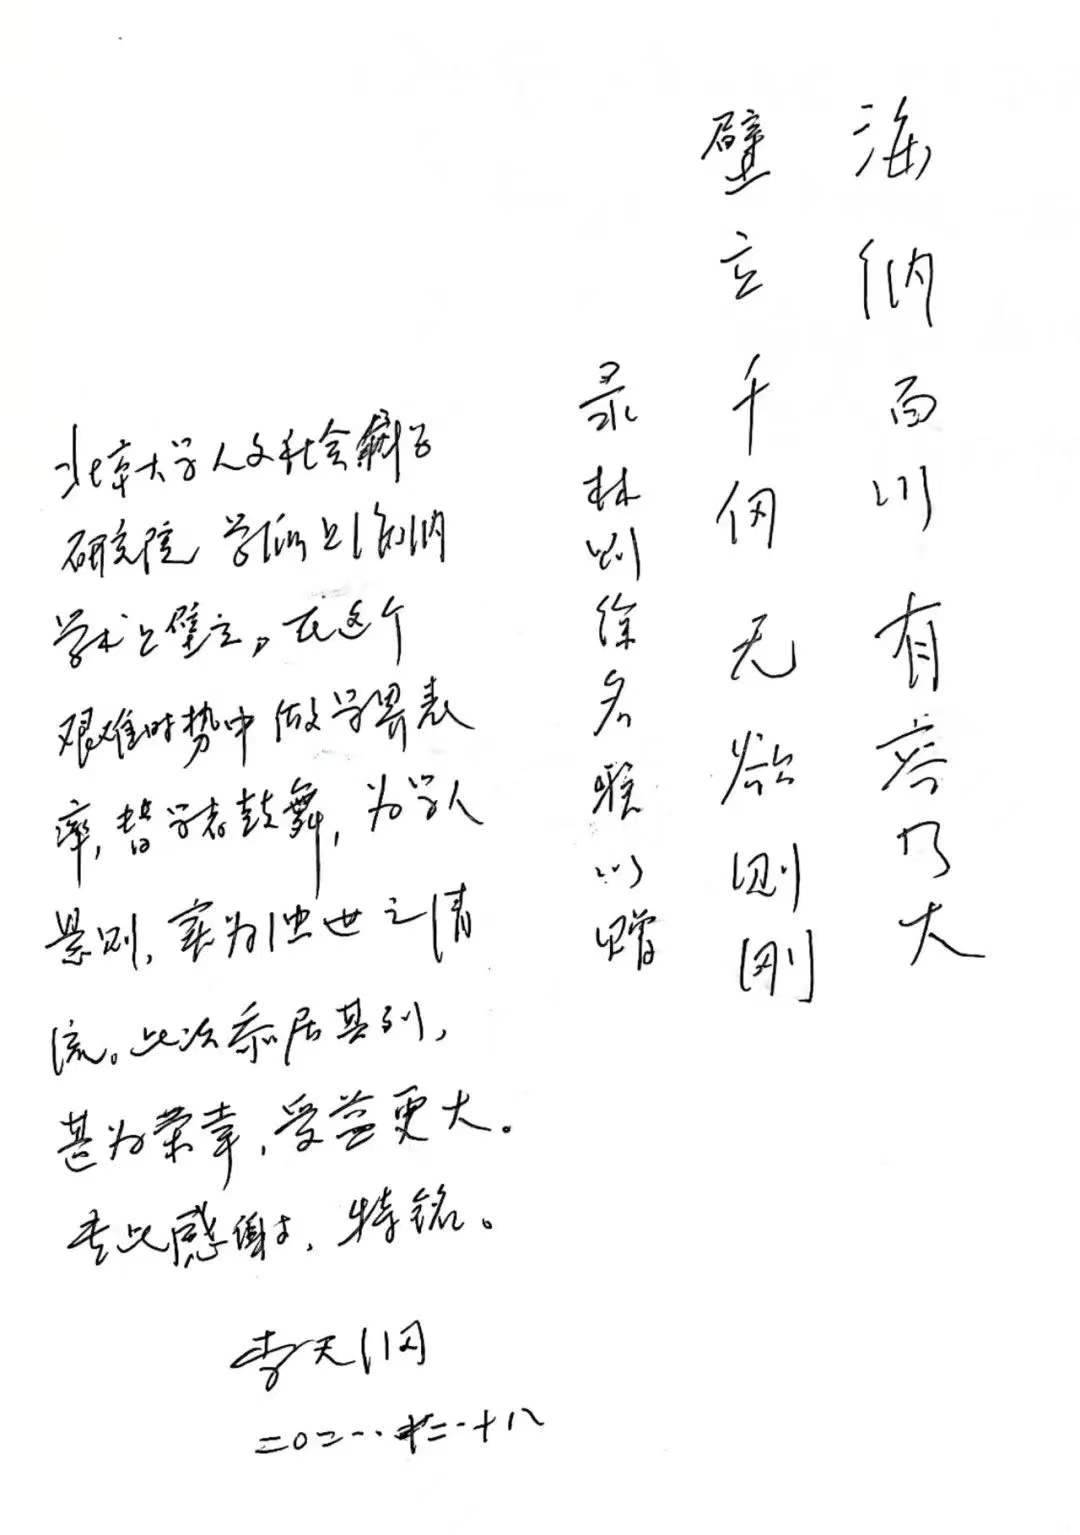 海纳百川有容乃大
壁立千仞无欲则刚
录林则徐名联以赠
北京大学人文社会科学
研究院 学派上归纳
学术上壁立，在这个
艰难时势中做学界表
率，替学者鼓舞，为学人
景则，实为浊世之清
流。此次忝居其列，
甚为荣幸，受益更大。
专此感谢，特铭。
李天纲
二〇二一·十二·十八